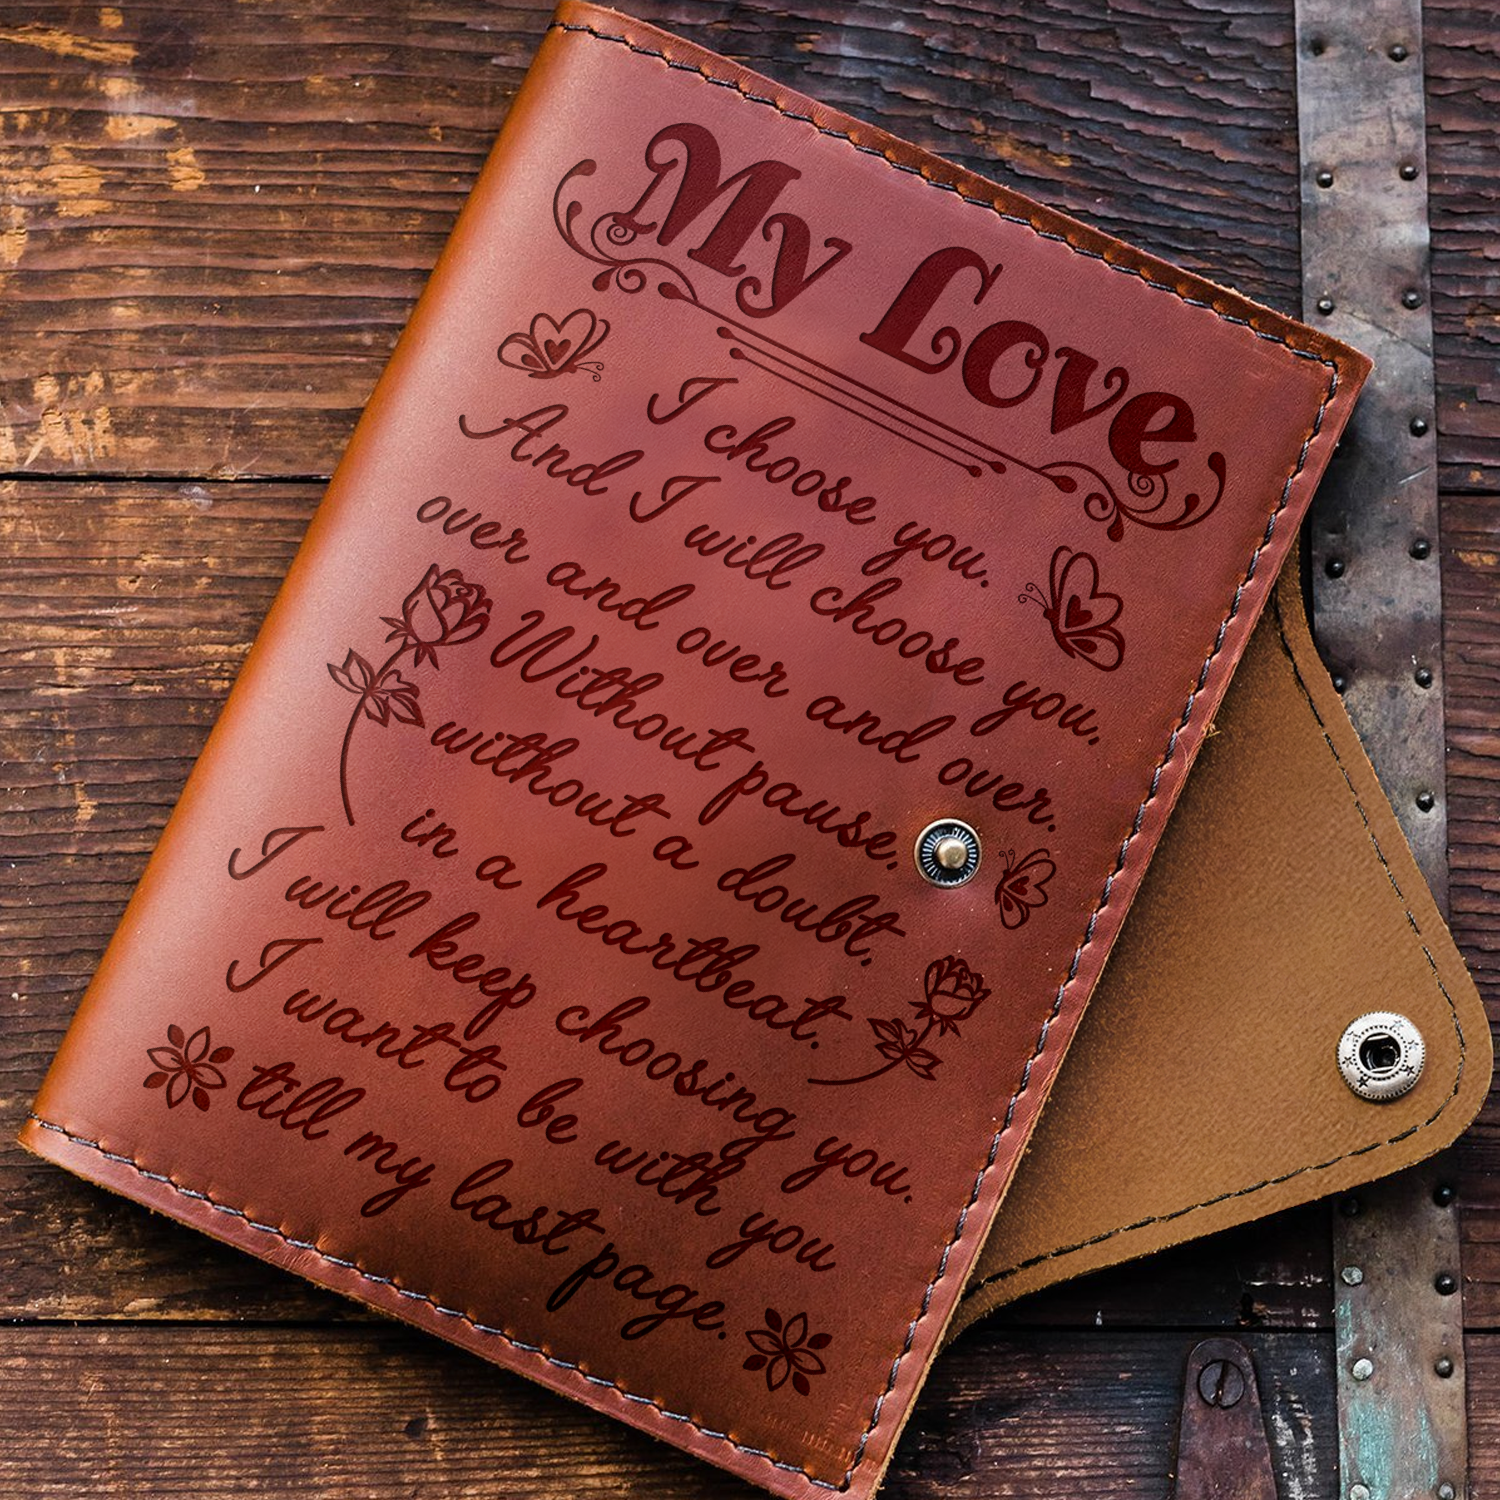 My Love
I choose you.
And I will choose you,
over and over and over.
Without pause,
without a doubt,
in a heartbeat.
I will keep choosing you.
I want to be with you
till my last page.